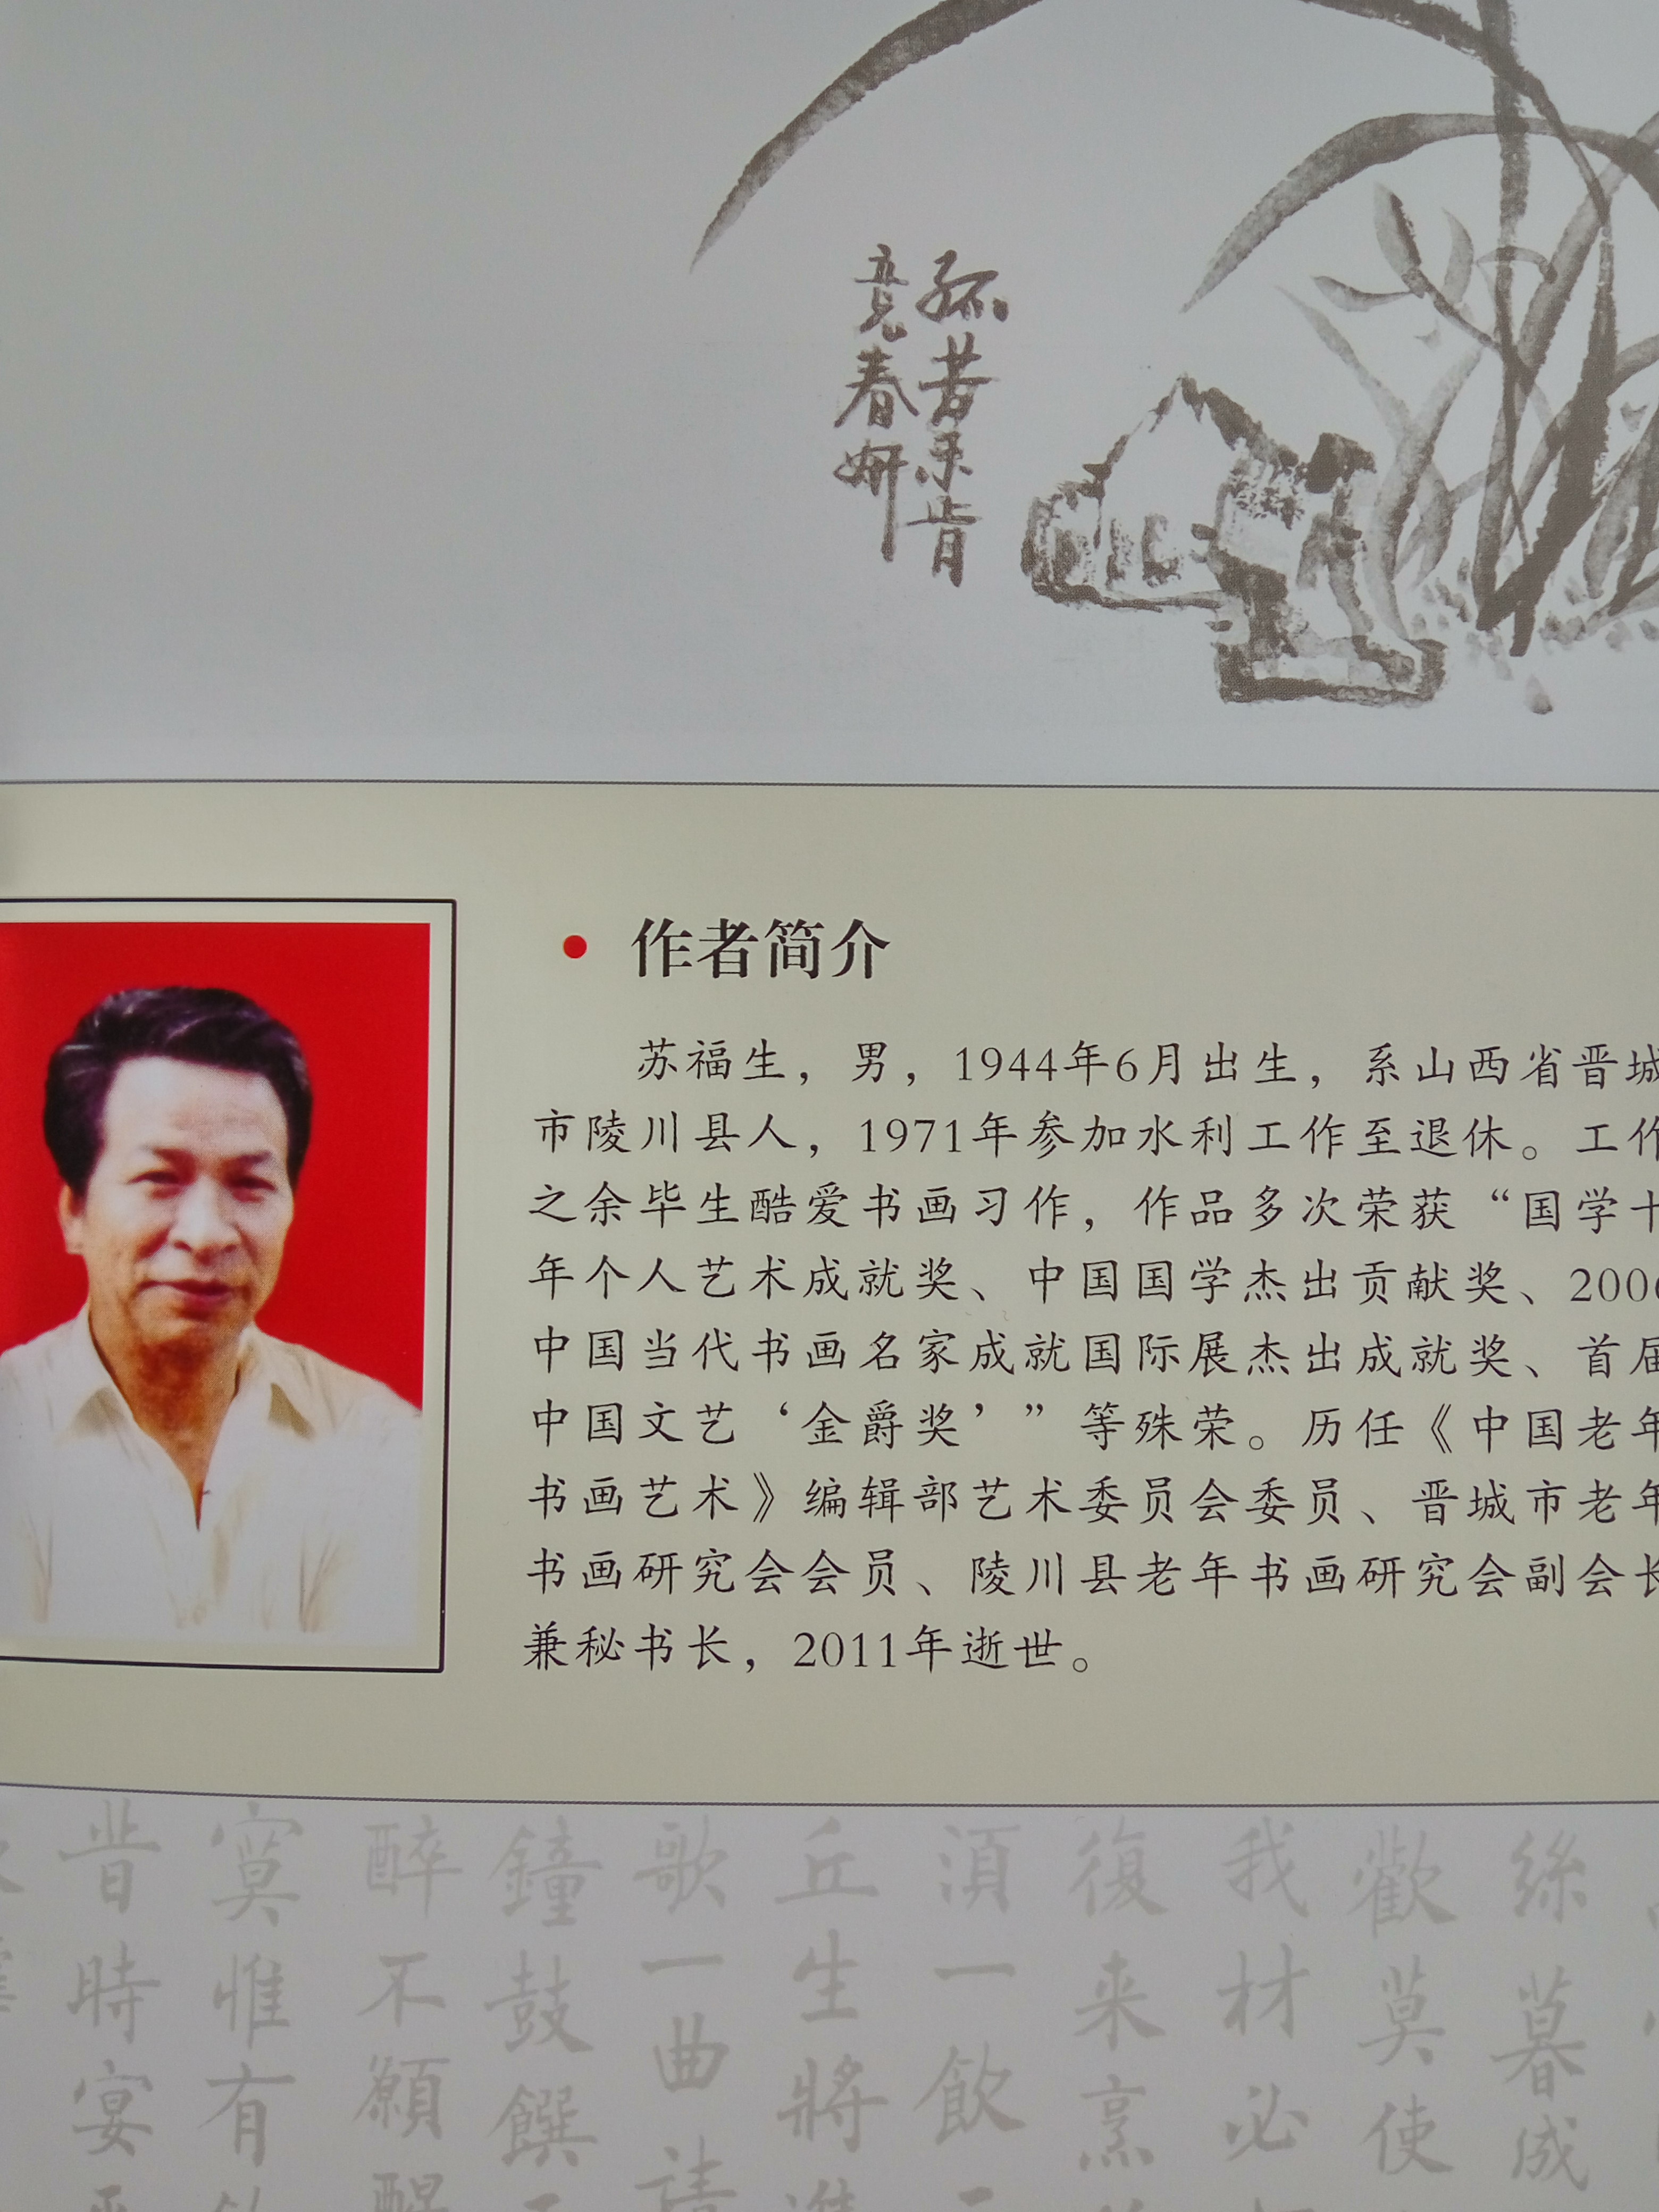 孤芳未肯
竞春妍
作者简介
苏福生，男，1944年6月出生，系山西省晋城
市陵川县人，1971年参加水利工作至退休。工作
之余毕生酷爱书画习作，作品多次荣获“国学十
年个人艺术成就奖、中国国学杰出贡献奖、2006
中国当代书画名家成就国际展杰出成就奖、首届
中国文艺‘金爵奖’”等殊荣。历任《中国老年
书画艺术》编辑部艺术委员会委员、晋城市老年
书画研究会会员、陵川县老年书画研究会副会长
兼秘书长，2011年逝世。
絲暮成
歡莫使
我材必
復来烹
須一飲
丘生將進
歌一曲請
鐘鼓饌
醉不願醒
寞惟有
昔時宴